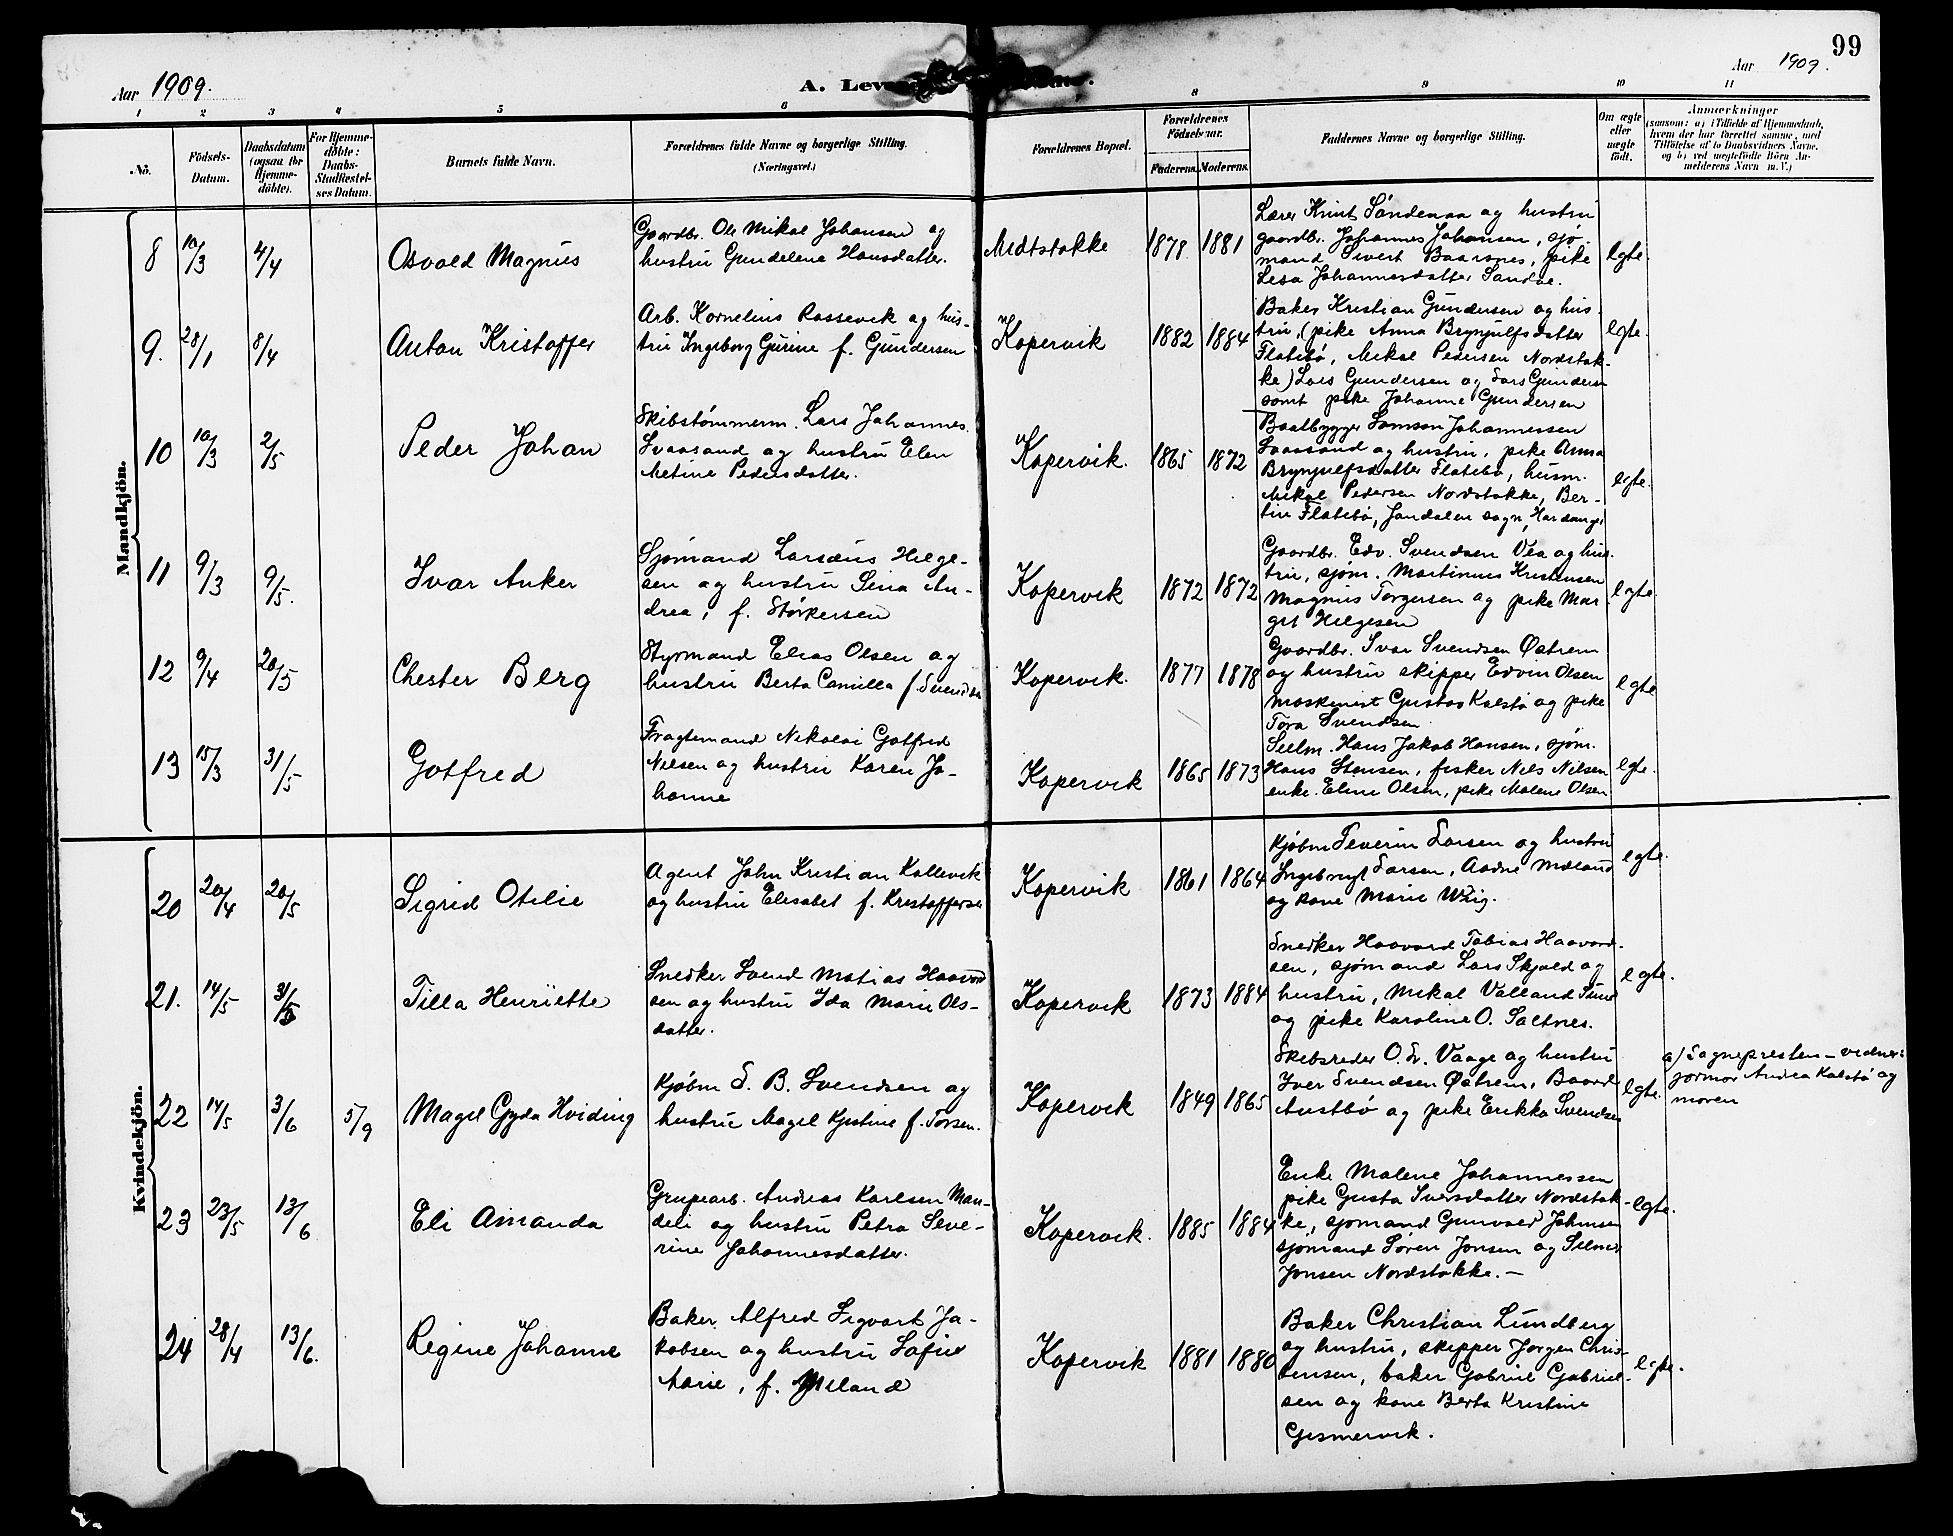 99
Aar 1909.
A. Leve
Aar 1909.
1 2 3 4 5 6 8 9 10 11
No.
Födsels-Datum.
Daabsdatum (ogsaa for Hjemme-döbte).
For Hjemme-döbte: Daabs-Stadfæstel-ses Datum.
Barnets fulde Navn.
Forældrenes fulde Navne og borgerlige Stilling.
(Næringsvei.)
Forældrenes Bopæl.
Forældrenes Födselsaar.
Faderens. Moderens.
Faddernes Navne og borgerlige Stilling.
Om ægte eller uægte födt.
Anmærkninger
(saasom: a) i Tilfælde af Hjemmedaab, hvem der har forrettet samme, med Tilföielse af to Daabsvidners Navne, og b) ved uægtefödte Börn An-melderens Navn m. V.)
Mandkjön.
8 10/3 4/4 Osvald Magnus
Gaardbr. Ole Mikal Johansen og
hustru Gundelene Hansdatter.
Midtstokke 1878 1881
Lærer Knut Söndenaa og hustru
gaardbr. Johannes Johansen, sjö-
mand Sivert Baarsnes, pike
Lesa Johannesdatter Sandve.
egte.
9. 28/1 8/4 Anton Kristoffer
Arb. Kornelius Rossevik og hus-
tru Ingeborg Gurine f. Gundersen
Kopervik 1882 1884
Baker Kristian Gundersen og hus-
tru, (pike Anna Brynjulfsdatter
Flatebö, Mikal Pedersen Nordstok-
ke) Lois Gundersen og Lars Gundersen
samt pike Johanne Gundersen
egte.
10 10/3 2/5 Peder Johan
Skibstömmerm. Lars Johannes.
Svaasand og hustru Elen
Metine Pedersdatter.
Kopervik. 1865 1872
Baatbygger Samson Johannessen
Svaasand og hustru, pike Anna
Brynjulfsdatter Flatebö, husm.
Mikal Pedersen Nordstokke, Ber-
tin Flatebö, Jondalen sogn, Hardanger
egte.
11 9/3 9/5. Ivar Anker
Sjömand Larsæus Helge-
sen og hustru Sina An-
drea, f. Störkersen
Kopervik 1872 1872
Gaardbr. Edv. Svendsen Vea og hus-
tru, sjöm. Martinus Kristensen
Magnus Torgersen og pike Mar-
git Helgesen
egte
12 9/4 20/5 Chester Berg
Styrmand Elias Olsen og
hustru Berta Camilla f. Svendsen
Kopervik. 1877 1878
Gaardbr. Ivar Svendsen Östrem
og hustru skipper Edvin Olsen
Maskinist Gustav Kalstö og pike
Tora Svendsen
egte
13 15/3 31/5 Gotfred
Fragtemand Nikolai Gotfred
Nilsen og hustru Karen Jo-
hanne
Kopervik 1865 1873
Seilm. Hans Jakob Hansen, sjöm.
Hans Stensen, fisker Nils Nilsen
enke. Eline Olsen, pike Malene Olsen
egte.
Kvindekjön.
20 20/4 20/5 Sigrid Otilie
Agent John Kristian Kollevik
og hustru Elisabet f. Kristoffersen
Kopervik 1861 1864
Kjöbm Severin Larsen og hustru
Larsen, Aadne Mæland
og kone Marie
egte.
21. 14/5 31/5 Tilla Henriette
Snedker Svend Matias Haavard
sen og hustru Ida Marie Ols-
datter.
Kopervik 1873 1884
Snedker Haavard Tobias Haavard-
sen, sjömand Lars Skjold og
hustru, Mikal Valland
og pike Karoline O. Saltnes.
egte.
22 14/5 3/6 5/9 Magel Gyda Hviding
Kjöbm S. B. Svendsen og
hustru Magel Kjestine f. Torsen.
Kopervik 1849 1865
Skibsreder O. Vaage og hustru
Iver Svendsen Östrem, Baard
Austbö og pike Erikka Svendsen
egte.
a) Sognepresten - vidner:
jormor Andrea Kalstö og
moren
23 23/5 13/6 Eli Amanda
Grubearb. Andreas Karlsen Man-
deli og hustru Petra Seve-
rine Johannesdatter.
Kopervik. 1885 1884
Enke Malene Johannessen
pike Gusta Iversdatter Nordstok-
ke, sjömand Gunvald Johnsen
sjömand Sören Jonsen og Selmer
Jonsen Nordstokke. -
egte.
24 28/4 13/6. Regine Johanne
Baker Alfred Sigvart Ja-
kobsen og hustru Sofie
Marie, f. Meland
Kopervik 1881 1880
Baker Christian Lundberg
og hustru, skipper Jörgen Chris-
tensen, baker Gabriel Gabriel-
sen og kone Berta Kristine
Gismervik.
egte.